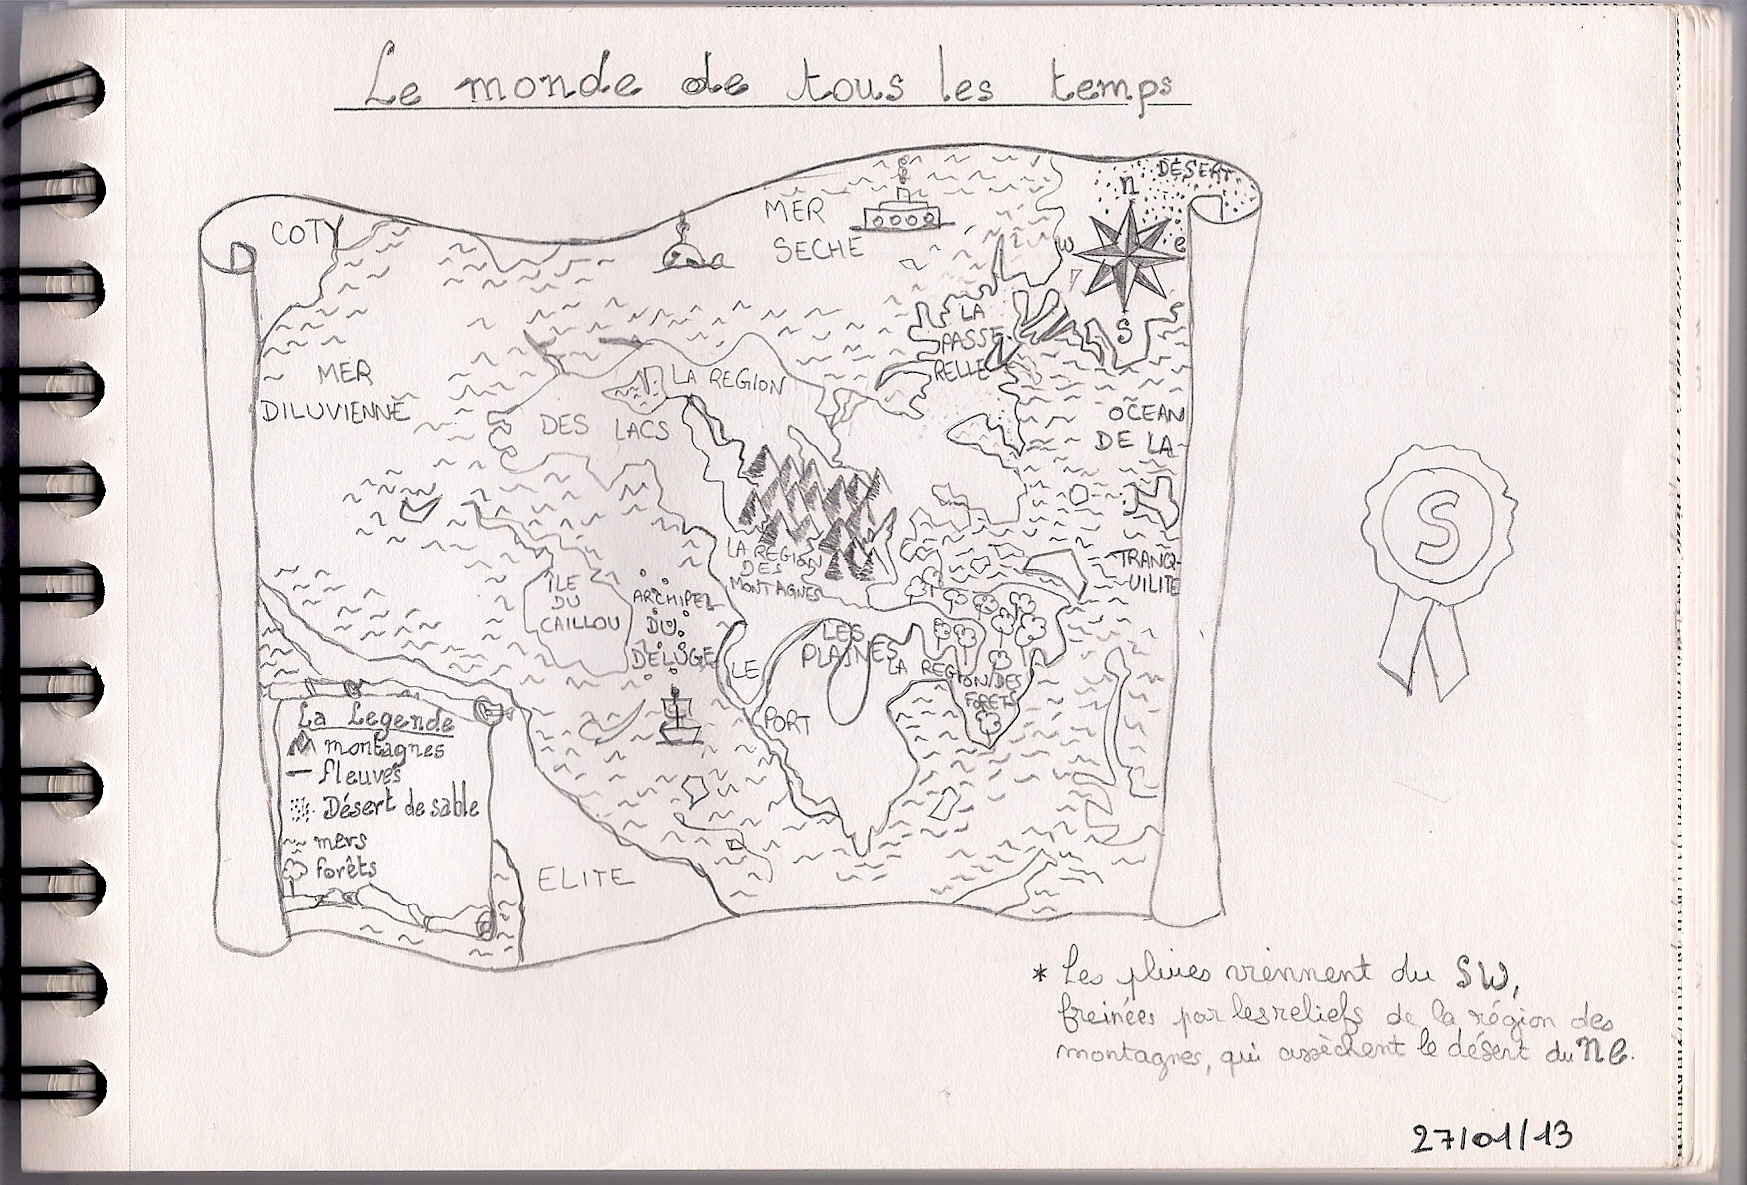 Le monde de tous les temps
DÉSERT
n
w
e
S
COTY
MER
SECHE
MER
DILUVIENNE
LA
PASSE
RELLE
LA REGION
DES LACS
OCEAN
DE LA
TRANQ-
UILITE
LA REGION
DES
MONTAGNES
ÎLE
DU
CAILLOU
ARCHIPEL
DU
DELUGE
LE
PORT
LES
PLAINES
LA REGION DES
FORETS
La Legende
montagnes
fleuves
Désert de sable
mers
forêts
ELITE
S
* Les pluies viennent du SW,
freinées par les reliefs de la région des
montagnes, qui assèchent le désert du NE.
27/01/13